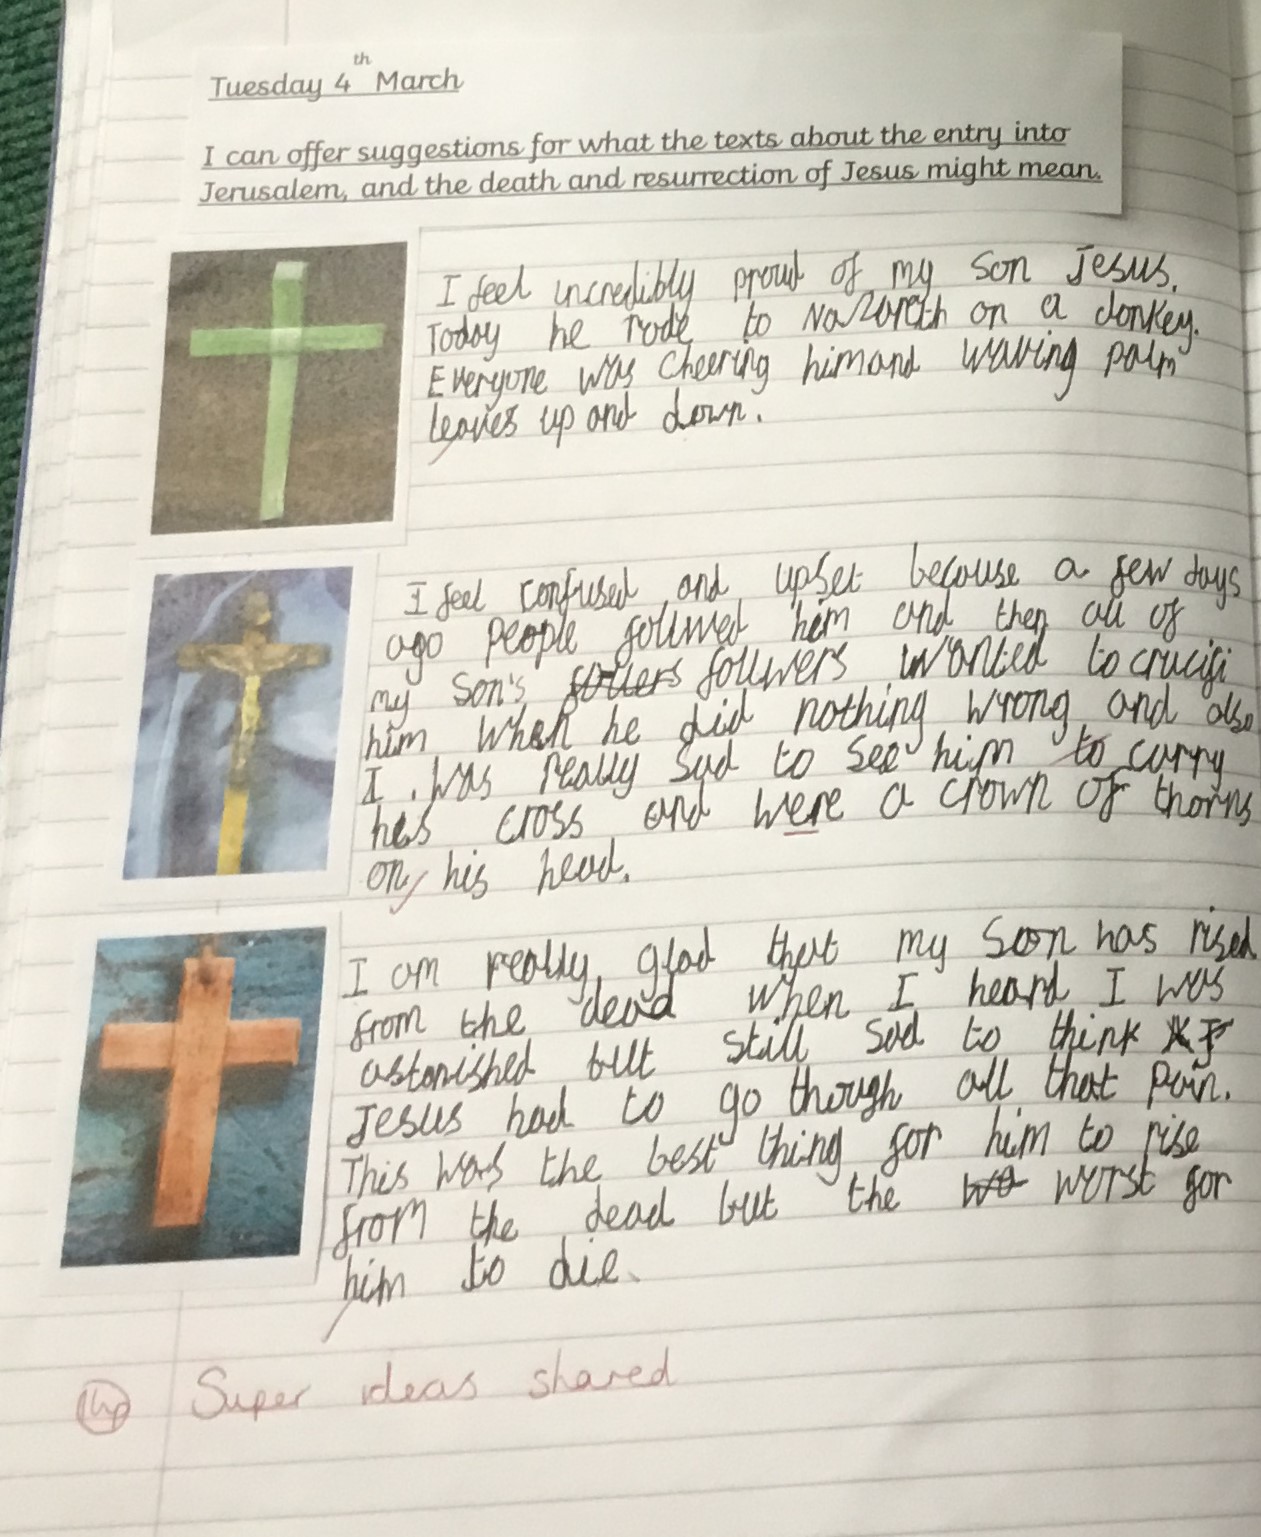 Tuesday 4th March
I can offer suggestions for what the texts about the entry into
Jerusalem, and the death and resurrection of Jesus might mean.
I feel incredibly proud of my Son Jesus.
Today he rode to Nazareth on a donkey.
Everyone was cheering him and waving palm
leaves up and down.
I feel confused and upset because a few days
ago people follwed him and then all of
my son's follers follwers wanted to crucifi
him when he did nothing wrong and also
I was really sad to see him to carry
his cross and were a crown of thorns
on his head.
I am really glad that my Son has rised
from the dead when I heard I was
astonished but still sad to think
Jesus had to go though all that pain.
This was the best thing for him to rise
from the dead but the wo worst for
him to die.
Super ideas shared